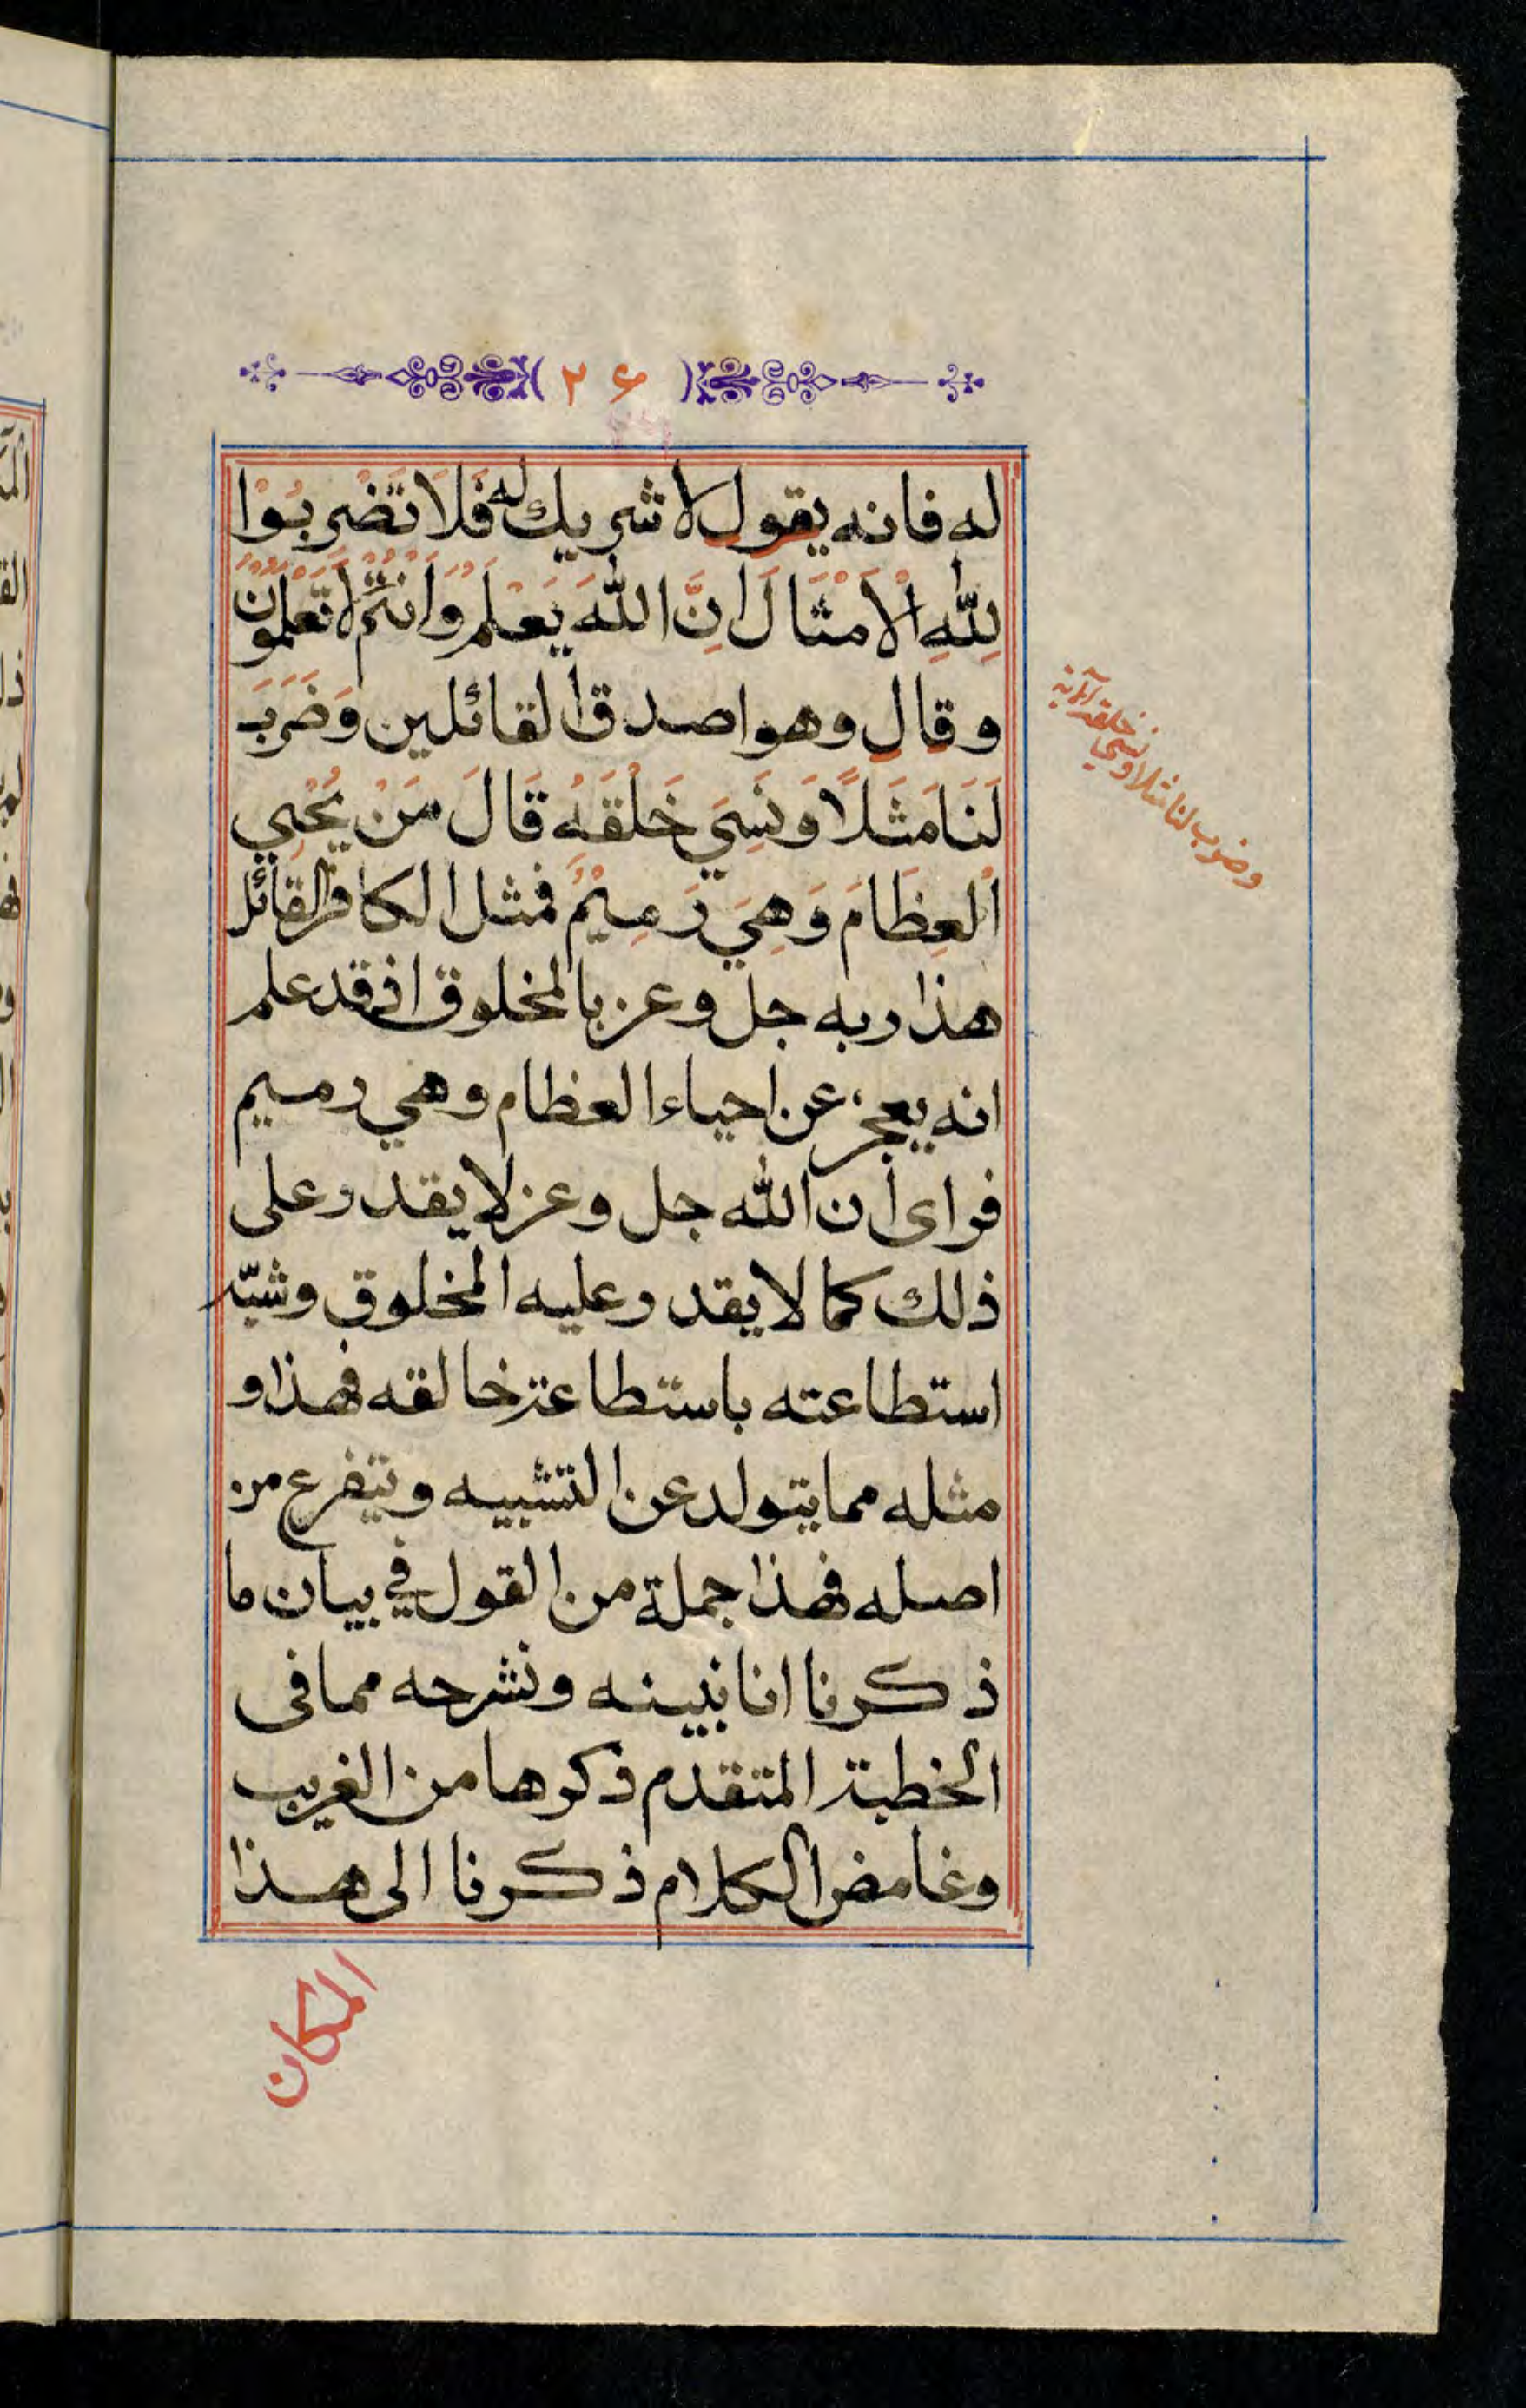 ( ٢٦ )
له فانه يقول لا شريك له فَلَا تَضْرِبُوْا
لِلّٰهِ الْاَمْثَالَ اِنَّ اللّٰهَ يَعْلَمُ وَاَنْتُمْ لَا تَعْلَمُوْنَ
وقال وهو اصدق القائلين وَضَرَبَ
لَنَا مَثَلًا وَنَسِيَ خَلْقَهُ قَالَ مَنْ يُحْيِي
الْعِظَامَ وَهِيَ رَمِيْمٌ فمثل الكافر القائل
هذا ربه جل وعز بالمخلوق اذ قد علم
انه يعجز عن احياء العظام وهي رميم
فراى ان الله جل وعز لا يقدر على
ذلك كما لا يقدر عليه المخلوق وشبّه
استطاعته باستطاعة خالقه فهذا و
مثله مما يتولد عن التشبيه ويتفرع من
اصله فهذا جملة من القول في بيان ما
ذكرنا انا نبينه ونشرحه مما فى
الخطبة المتقدم ذكرها من الغريب
وغامض الكلام ذكرنا الى هذا
المكان
وضرب لنا مثلا ونسي
خلقه الآية